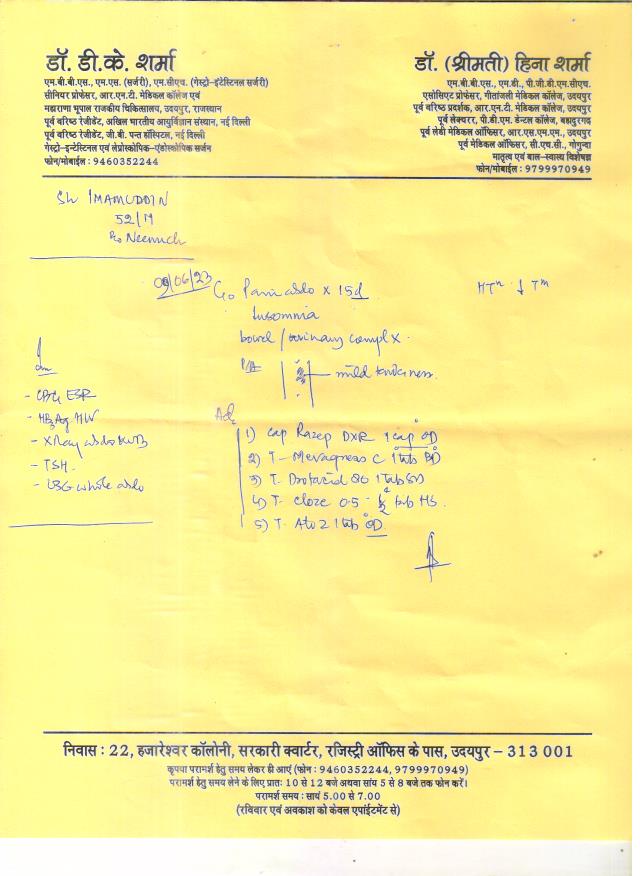 डॉ. डी.के. शर्मा
एम.बी.बी.एस., एम.एस. (सर्जरी), एम.सीएच. (गेस्ट्रो-इंटेस्टिनल सर्जरी)
सीनियर प्रोफेसर, आर.एन.टी. मेडिकल कॉलेज एवं
महाराणा भूपाल राजकीय चिकित्सालय, उदयपुर, राजस्थान
पूर्व वरिष्ठ रेजीडेंट, अखिल भारतीय आयुर्विज्ञान संस्थान, नई दिल्ली
पूर्व वरिष्ठ रेजीडेंट, जी.बी. पन्त हॉस्पिटल, नई दिल्ली
गेस्ट्रो-इन्टेस्टिनल एवं लेप्रोस्कोपिक-एंडोस्कोपिक सर्जन
फोन/मोबाईल : 9460352244
डॉ. (श्रीमती) हिना शर्मा
एम.बी.बी.एस., एम.डी., पी.जी.डी.एम.सीएच.
एसोसिएट प्रोफेसर, गीतांजली मेडिकल कॉलेज, उदयपुर
पूर्व वरिष्ठ प्रदर्शक, आर.एन.टी. मेडिकल कॉलेज, उदयपुर
पूर्व लेक्चरर, पी.डी.एम. डेन्टल कॉलेज, बहादुरगढ़
पूर्व लेडी मेडिकल ऑफिसर, आर.एस.एम.एम., उदयपुर
पूर्व मेडिकल ऑफिसर, सी.एच.सी., गोगुन्दा
मातृत्व एवं बाल-स्वास्थ्य विशेषज्ञ
फोन/मोबाईल : 9799970949
Sh IMAMUDDIN
52/M
R/o Neemuch
09/06/23 C/o Pain abdo x 15d
Insomnia
bowel / urinary compl x
P/A mild tenderness
- CBC, ESR
- HBsAg, HIV
- X Ray abdo KUB
- TSH
- USG whole abdo
Ad
1) Cap Razep DXR 1 cap OD
2) T- Mevagness C 1 tab BD
3) T. Drotacid 80 1 tab
4) T- Cloze 0.5 - 1/2 tab HS.
5) T- A to Z 1 tab OD
निवास : 22, हजारेश्वर कॉलोनी, सरकारी क्वार्टर, रजिस्ट्री ऑफिस के पास, उदयपुर – 313 001
कृपया परामर्श हेतु समय लेकर ही आएं (फोन : 9460352244, 9799970949)
परामर्श हेतु समय लेने के लिए प्रातः 10 से 12 बजे अथवा सांय 5 से 8 बजे तक फोन करें।
परामर्श समय : सायं 5.00 से 7.00
(रविवार एवं अवकाश को केवल एपॉईंटमेंट से)